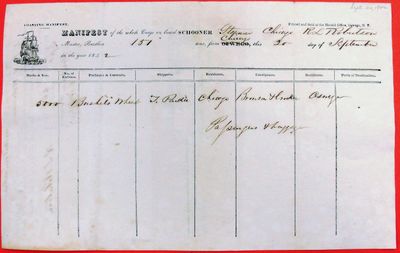 LOADING MANIFEST.
Printed and Sold at the Herald Office, Oswego, N. Y.
MANIFEST of the whole Cargo on board SCHOONER Steamer Chicago
Master, Burthen 151 tons, from OSWEGO, Chicago this 20 day of September
in the year 185
Marks & Nos. No. of Entries. Packages & Contents. Shippers. Residence. Consignees. Residence. Ports of Destination.
5000 Bushels Wheat Chicago Bronson & Oswego
Passengers & baggage